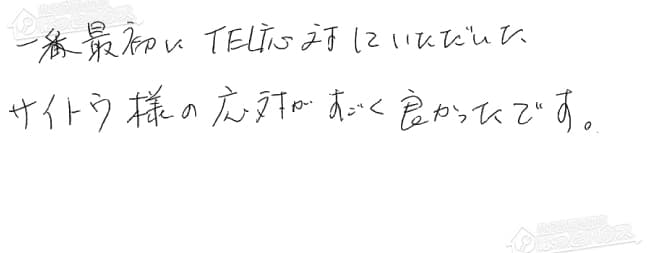 一番最初に TEL応対していただいた、
サイトウ様の応対がすごく良かったです。